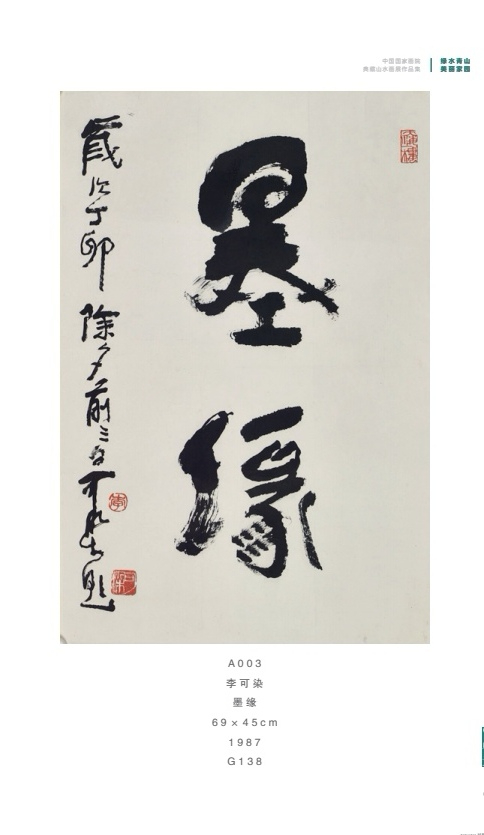 中国国家画院
典藏山水画展作品集
绿水青山
美丽家园
墨缘
歲次丁卯除夕前三日可染書題
A003
李可染
墨缘
69×45cm
1987
G138